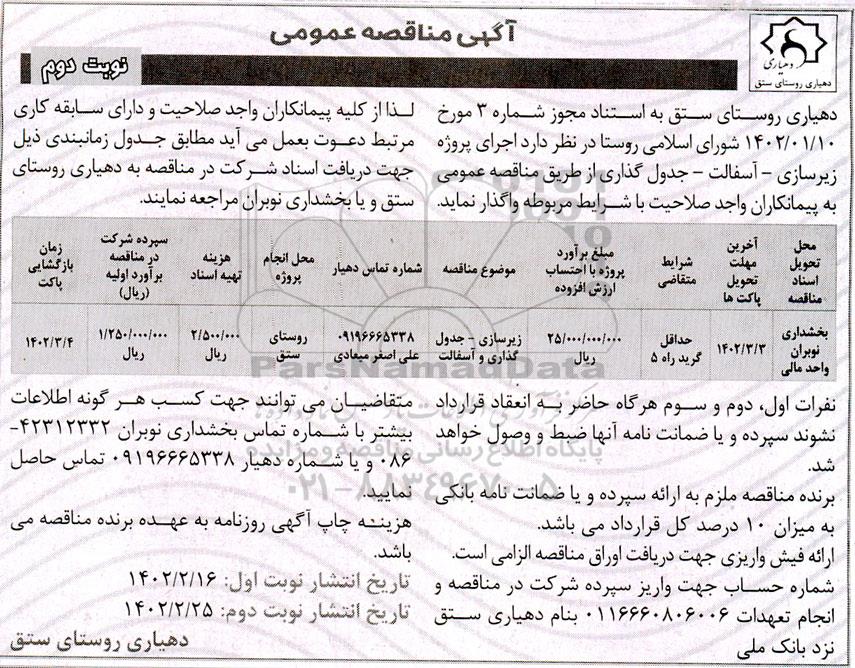 آگهی مناقصه عمومی
دهیاری
دهیاری روستای ستق
نوبت دوم
دهیاری روستای ستق به استناد مجوز شماره ۳ مورخ
۱۴۰۲/۰۱/۱۰ شورای اسلامی روستا در نظر دارد اجرای پروژه
زیرسازی – آسفالت – جدول گذاری از طریق مناقصه عمومی
به پیمانکاران واجد صلاحیت با شرایط مربوطه واگذار نماید.
لذا از کلیه پیمانکاران واجد صلاحیت و دارای سابقه کاری
مرتبط دعوت بعمل می آید مطابق جدول زمانبندی ذیل
جهت دریافت اسناد شرکت در مناقصه به دهیاری روستای
ستق و یا بخشداری نوبران مراجعه نمایند.
محل تحویل اسناد مناقصه
آخرین مهلت تحویل پاکت ها
شرایط متقاضی
مبلغ برآورد پروژه با احتساب ارزش افزوده
موضوع مناقصه
شماره تماس دهیار
محل انجام پروژه
هزینه تهیه اسناد
سپرده شرکت در مناقصه برآورد اولیه (ریال)
زمان بازگشایی پاکت
بخشداری نوبران واحد مالی
۱۴۰۲/۳/۳
حداقل گرید راه ۵
۲۵/۰۰۰/۰۰۰/۰۰۰ ریال
زیرسازی – جدول گذاری و آسفالت
۰۹۱۹۶۶۶۵۳۳۸ علی اصغر میعادی
روستای ستق
۲/۵۰۰/۰۰۰ ریال
۱/۲۵۰/۰۰۰/۰۰۰ ریال
۱۴۰۲/۳/۴
ParsNamadData
نفرات اول، دوم و سوم هرگاه حاضر به انعقاد قرارداد
نشوند سپرده و یا ضمانت نامه آنها ضبط و وصول خواهد
شد.
برنده مناقصه ملزم به ارائه سپرده و یا ضمانت نامه بانکی
به میزان ۱۰ درصد کل قرارداد می باشد.
ارائه فیش واریزی جهت دریافت اوراق مناقصه الزامی است.
شماره حساب جهت واریز سپرده شرکت در مناقصه و
انجام تعهدات ۰۱۱۶۶۶۰۸۰۶۰۰۶ بنام دهیاری ستق
نزد بانک ملی
متقاضیان می توانند جهت کسب هر گونه اطلاعات
بیشتر با شماره تماس بخشداری نوبران ۴۲۳۱۲۳۳۲-
۰۸۶ و یا شماره دهیار ۰۹۱۹۶۶۶۵۳۳۸ تماس حاصل
نمایید.
هزینه چاپ آگهی روزنامه به عهده برنده مناقصه می
باشد.
تاریخ انتشار نوبت اول: ۱۴۰۲/۲/۱۶
تاریخ انتشار نوبت دوم: ۱۴۰۲/۲/۲۵
دهیاری روستای ستق
پایگاه اطلاع رسانی مناقصه و مزایده
۰۲۱-۸۸۳۴۹۶۷۰-۵